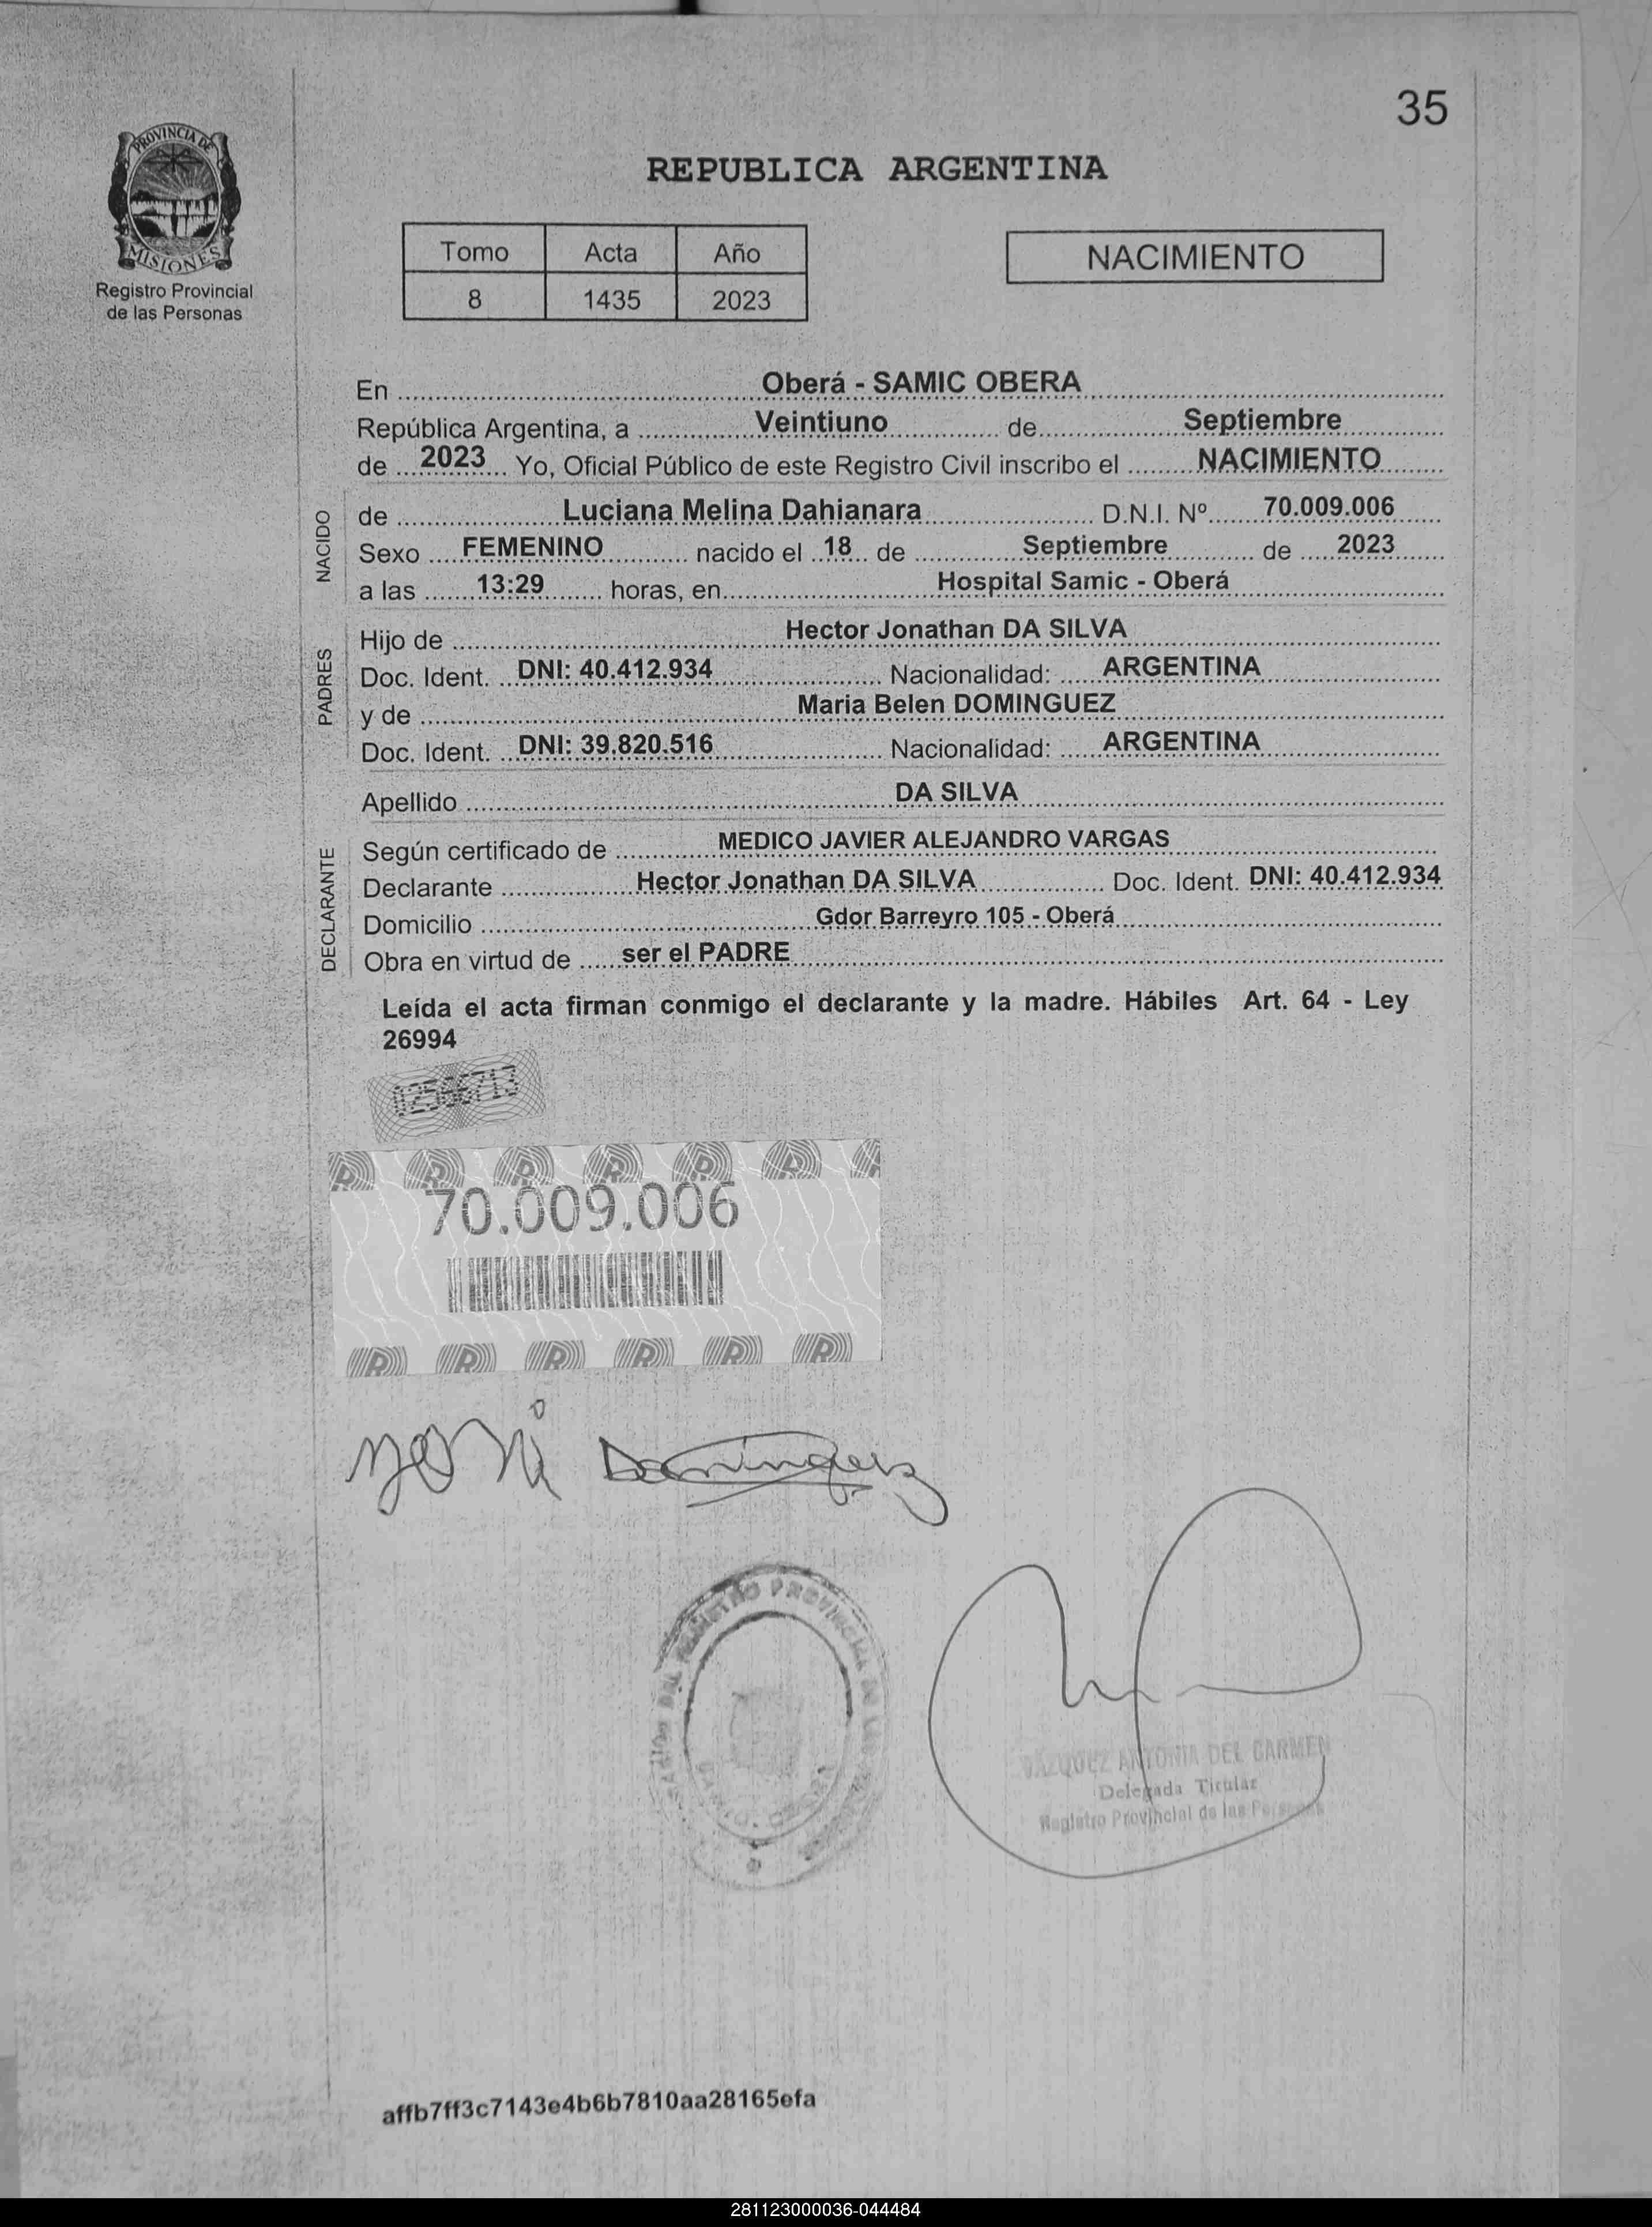 35
PROVINCIA DE
MISIONES
Registro Provincial
de las Personas
REPUBLICA ARGENTINA
Tomo Acta Año
8 1435 2023
NACIMIENTO
En Oberá - SAMIC OBERA
República Argentina, a Veintiuno de Septiembre
de 2023 Yo, Oficial Público de este Registro Civil inscribo el NACIMIENTO
NACIDO
de Luciana Melina Dahianara D.N.I. Nº 70.009.006
Sexo FEMENINO nacido el 18 de Septiembre de 2023
a las 13:29 horas, en Hospital Samic - Oberá
PADRES
Hijo de Hector Jonathan DA SILVA
Doc. Ident. DNI: 40.412.934 Nacionalidad: ARGENTINA
y de Maria Belen DOMINGUEZ
Doc. Ident. DNI: 39.820.516 Nacionalidad: ARGENTINA
Apellido DA SILVA
DECLARANTE
Según certificado de MEDICO JAVIER ALEJANDRO VARGAS
Declarante Hector Jonathan DA SILVA Doc. Ident. DNI: 40.412.934
Domicilio Gdor Barreyro 105 - Oberá
Obra en virtud de ser el PADRE
Leída el acta firman conmigo el declarante y la madre. Hábiles Art. 64 - Ley
26994
70.009.006
Dominguez
VAZQUEZ ANTONIA DEL CARMEN
Delegada Titular
Registro Provincial de las Personas
affb7ff3c7143e4b6b7810aa28165efa
281123000036-044484